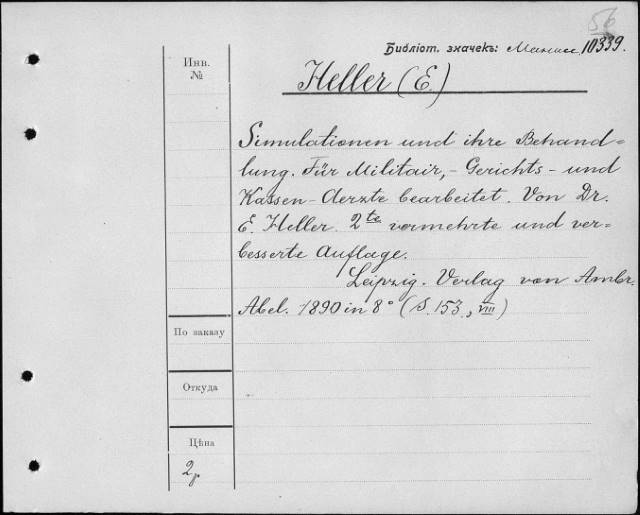 56
Библіот. значекъ: 10339.
Инв.
№
Heller (E.)
Simulationen und ihre Behand=
lung. Für Militair,- Gerichts- und
Kassen-Aerzte bearbeitet. Von Dr.
E. Heller. 2te vermehrte und ver-
besserte Auflage.
Leipzig. Verlag von Ambr.
Abel. 1890 in 8° (S. 153, VIII)
По заказу
Откуда
Цѣна
2р